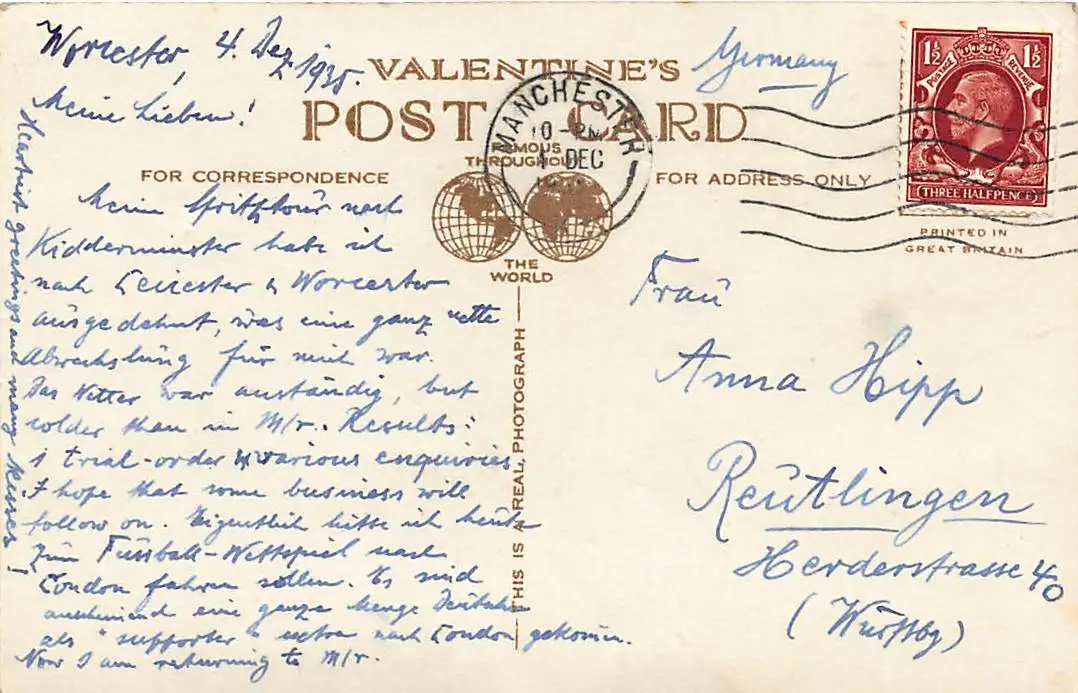 Worcester, 4. Dez. 1935.
Meine Lieben!
Meine Spritztour nach
Kidderminster habe ich
nach Leicester & Worcester
ausgedehnt, was eine ganz nette
Abwechslung für mich war.
Das Wetter war anständig, but
colder than in M/r. Results:
1 trial-order & various enquiries.
I hope that some business will
follow on. Eigentlich hätte ich heute
zum Fussball-Wettspiel nach
London fahren sollen. Es sind
anscheinend eine ganze Menge Deutsche
als "supporter" extra nach London gekomen.
Now I am returning to M/r.
Heartiest greetings and many kisses!
VALENTINE'S
POST CARD
FAMOUS
THROUGHOUT
THE
WORLD
FOR CORRESPONDENCE
FOR ADDRESS ONLY
THIS IS A REAL PHOTOGRAPH
MANCHESTER
10-PM
4 DEC
Germany
1½ 1½
POSTAGE REVENUE
(THREE HALFPENCE)
PRINTED IN
GREAT BRITAIN
Frau
Anna Hipp
Reutlingen
Herderstrasse 40
(Württbg)